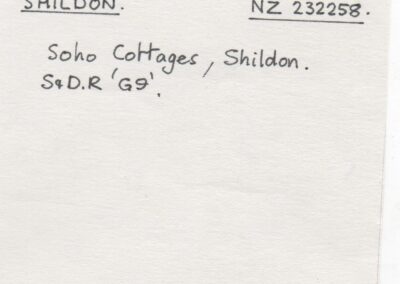 SHILDON. NZ 232258.
Soho Cottages, Shildon.
S&D.R 'G9'.